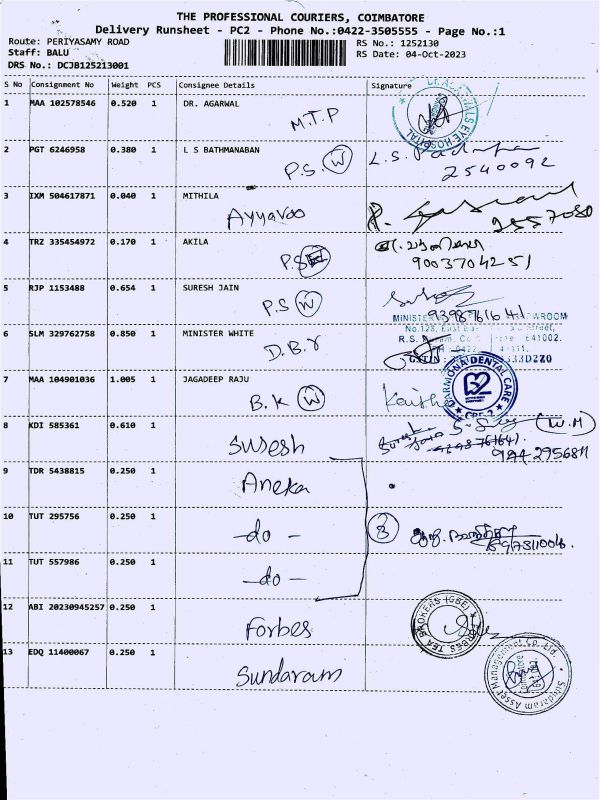 THE PROFESSIONAL COURIERS, COIMBATORE
Delivery Runsheet - PC2 - Phone No.:0422-3505555 - Page No.:1
Route: PERIYASAMY ROAD RS No.: 1252130
Staff: BALU RS Date: 04-Oct-2023
DRS No.: DCJB125213001
S No Consignment No Weight PCS Consignee Details Signature
1 MAA 102578546 0.520 1 DR. AGARWAL
M.T.P
DR. AGARWALS EYE HOSPITAL
2 PGT 6246958 0.380 1 L S BATHMANABAN
P.S. W L.S.
2540092
3 IXM 504617871 0.040 1 MITHILA
Ayyavoo 2557080
4 TRZ 335454972 0.170 1 AKILA
P.S
9003704251
5 RJP 1153488 0.654 1 SURESH JAIN
P.S W
MINISTER SHOWROOM
9398761641
No.128, East Street,
R.S. 641002.
6 SLM 329762758 0.850 1 MINISTER WHITE
D.B.r
GSTIN: 333D2Z0
7 MAA 104901036 1.005 1 JAGADEEP RAJU
B.K W
DENTAL CARE
CBE-2
8 KDI 585361 0.610 1
Suresh
(W.M)
9442956811
9 TDR 5438815 0.250 1
Aneka
10 TUT 295756 0.250 1
-do- 3
11 TUT 557986 0.250 1
-do-
12 ABI 20230945257 0.250 1
Forbes
FORBES TEA BROKERS (CBE)
13 EDQ 11400067 0.250 1
Sundaram
Sundaram Asset Management Co. Ltd.
Coimbatore